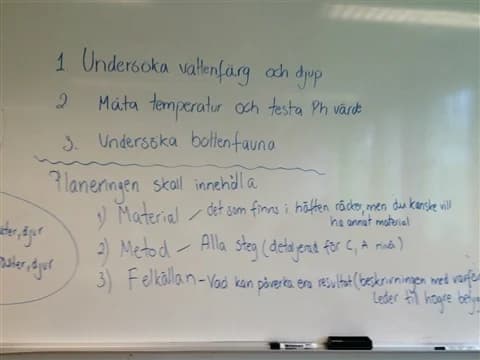 1 Undersöka vattenfärg och djup
2 Mäta temperatur och testa Ph värde
3. Undersöka bottenfauna
Planeringen skall innehålla
1) Material – det som finns i häften räcker, men du kanske vill
ha annat material
2) Metod – Alla steg (detaljerad för C, A nivå)
3) Felkällan – Vad kan påverka era resultat (beskrivningen med varför
leder till högre bety
djur
djur